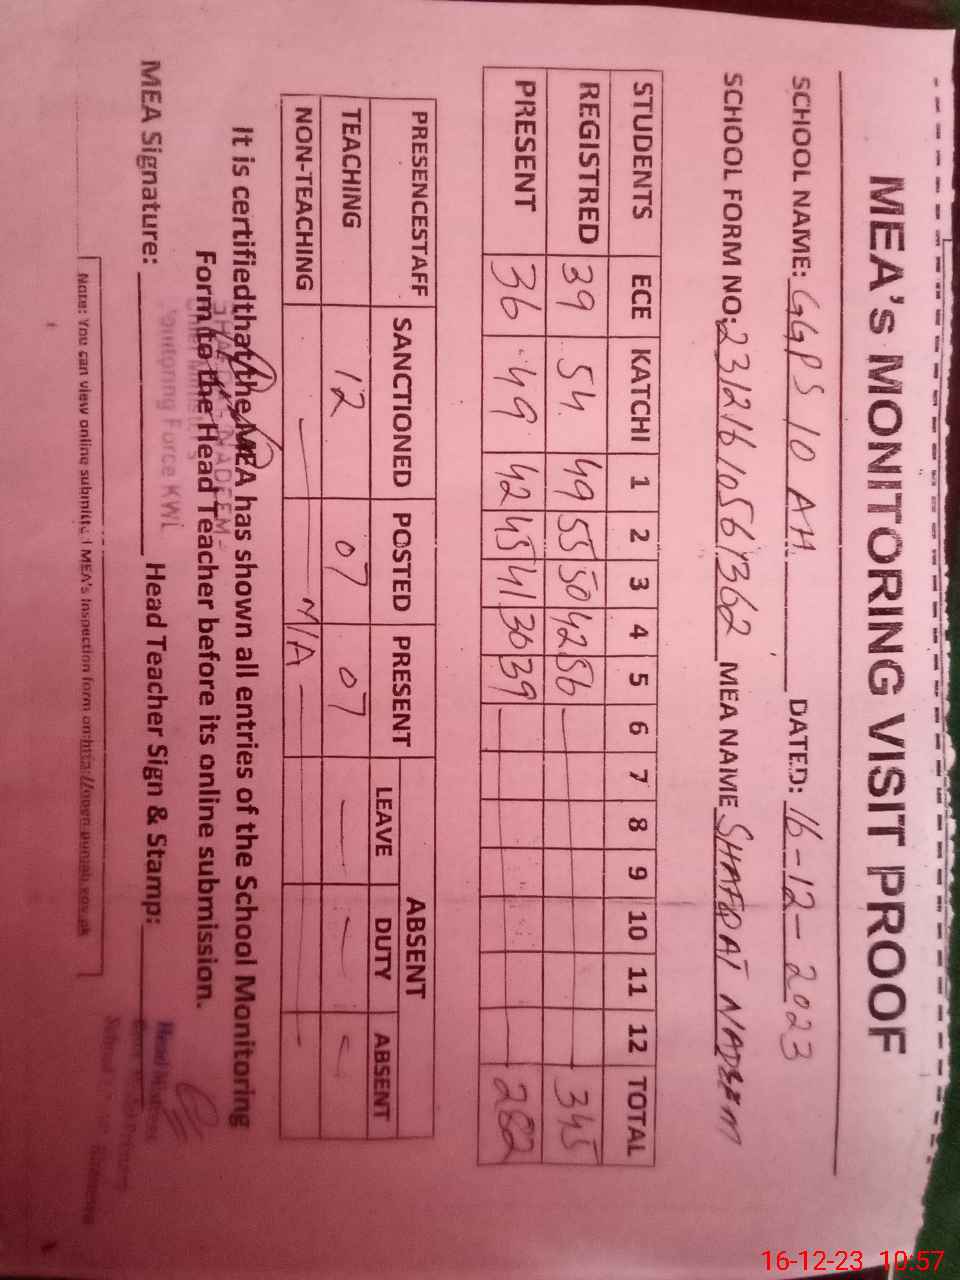 MEA's MONITORING VISIT PROOF
SCHOOL NAME: GGPS 10 AH DATED: 16-12-2023
SCHOOL FORM NO: MEA NAME SHAFQAT NADEEM
STUDENTS ECE KATCHI 1 2 3 4 5 6 7 8 9 10 11 12 TOTAL
REGISTRED 39 54 49 55 50 42 56 345
PRESENT 36 49 42 45 41 30 39 282
PRESENCESTAFF SANCTIONED POSTED PRESENT ABSENT
LEAVE DUTY ABSENT
TEACHING 12 07 07 — — —
NON-TEACHING — N/A —
It is certifiedthat the MEA has shown all entries of the School Monitoring
Form to the Head Teacher before its online submission.
SHAFQAT NADEEM
Monitoring Force KWL
MEA Signature: Head Teacher Sign & Stamp:
Head Mistress
Note: You can view online submitted MEA's Inspection form on:http://open.punjab.gov.pk
16-12-23 10:57